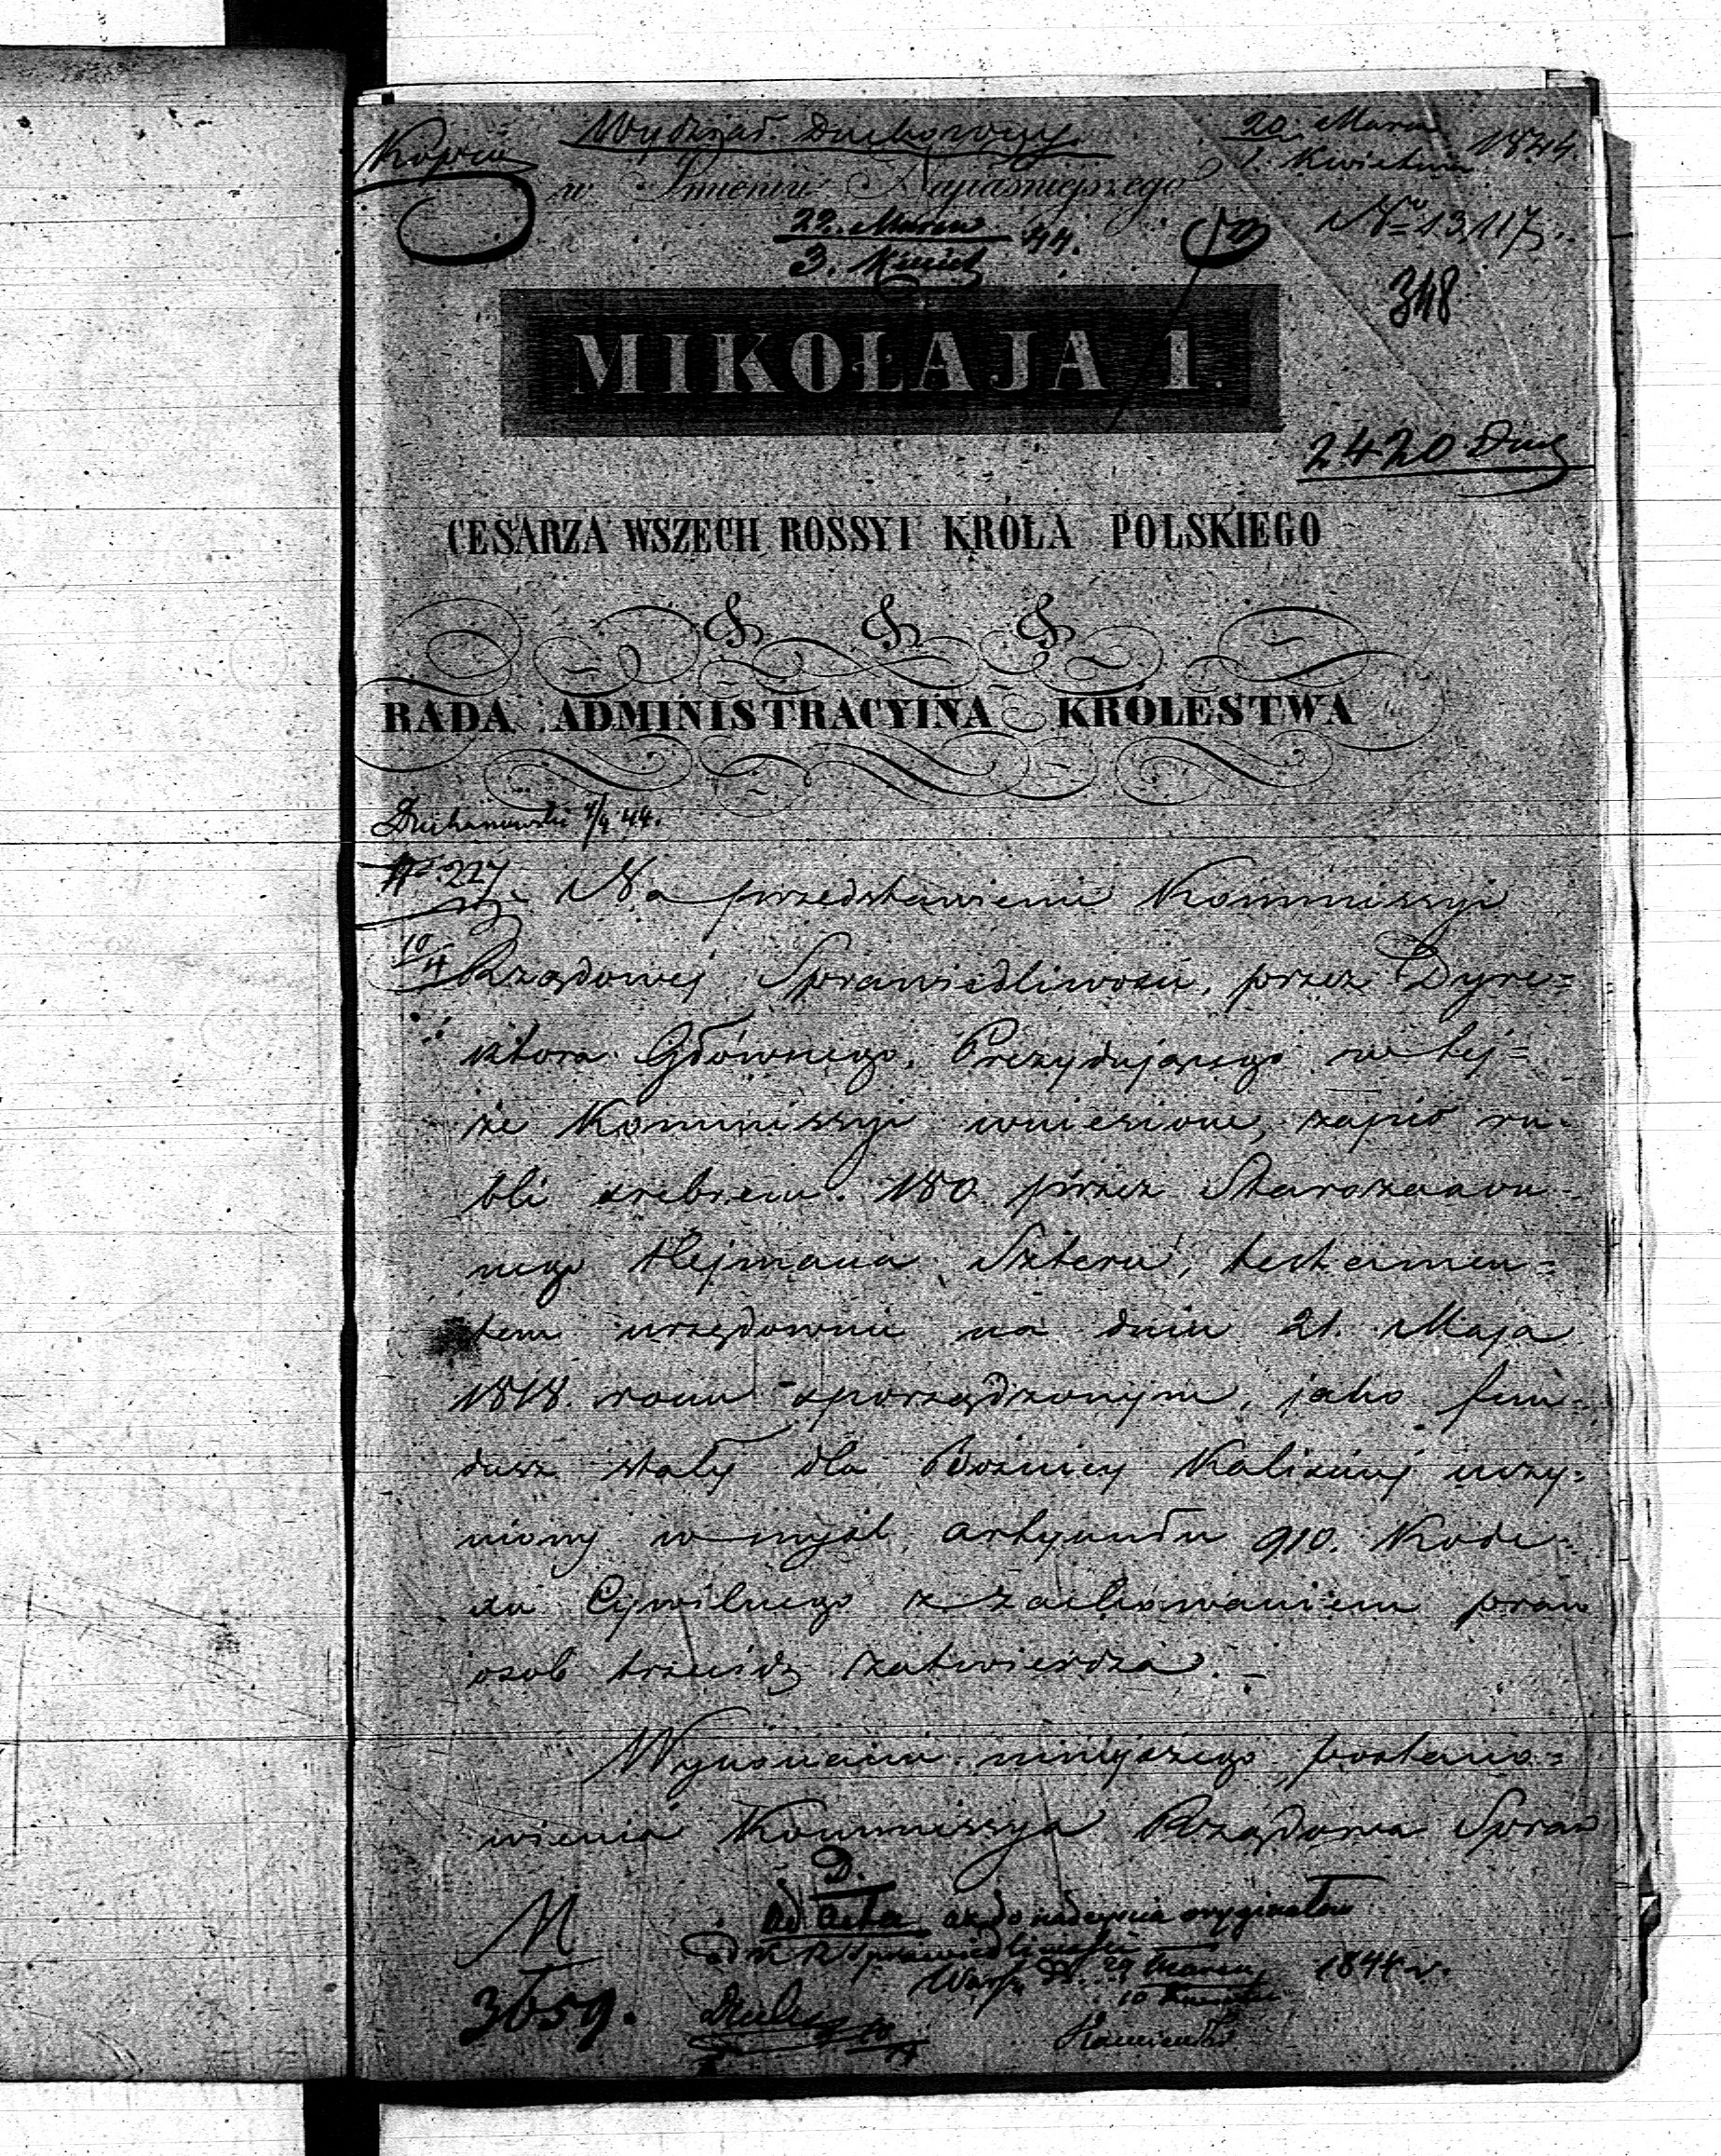 Kopia
Wydział Duchowny.
20. Marca
1. Kwietnia 1844.
w Imieniu Najjaśniejszego
22. Marca
3. Kwiet 44.
No 13,117
348
MIKOŁAJA 1.
2420 Duch
CESARZA WSZECH ROSSYI KRÓLA POLSKIEGO
&. &. &.
RADA ADMINISTRACYINA KRÓLESTWA
4/4 44.
No 227
10/4
Na przedstawienie Kommissyi
Rządowej Sprawiedliwości, przez Dyre=
ktora Głównego, Prezydującego w tej=
że Kommissyi wniesione, zapis ru-
bli srebrem 180 przez Starozakon-
nego Hejmana Sztern, testamen=
tem urzędownie na dniu 21. Maja
1818. roku sporządzonym, jako fun-
dusz stały dla Bóżnicy Kaliskiej uczy-
niony w myśl artykułu 910. Kode-
xu Cywilnego z zachowaniem praw
osób trzecich zatwierdza.
Wykonanie niniejszego postano=
wienia Kommissya Rządowa Spraw
D.
ad acta aż do nadejścia oryginałów
od K R Sprawiedliwości
Warsz. d. 29 Marca
10 Kwietnia 1844 r.
M
3659.